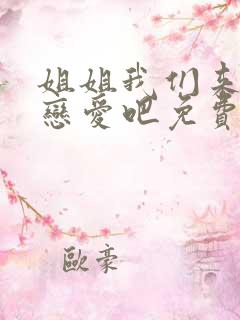 姐姐我们来
戀爱吧免費
歐豪